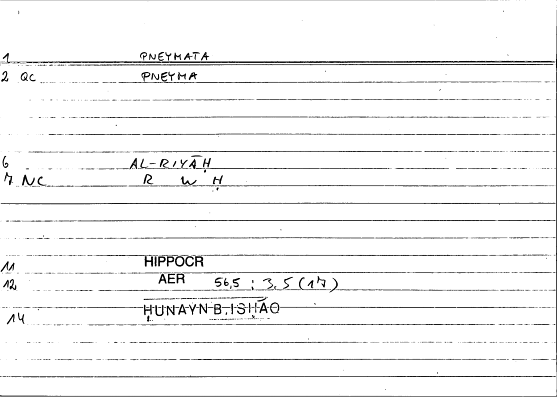 1 PNEYMATA
2 QC PNEYMA
6 AL-RIYĀḤ
7 NC R W Ḥ
11 HIPPOCR
12 AER 56,5 : 3,5 (17)
14 ḤUNAYN B. ISḤĀQ